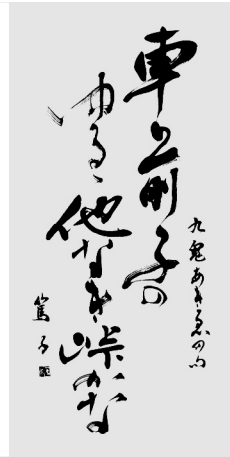 九鬼あきゑの句
車前子の
ゆるゝ他なき峠かな
篤子